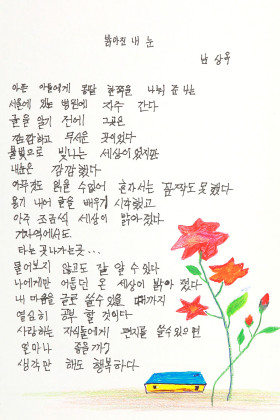 밝아진 내 눈
남 상욱
아픈 아들에게 콩팥 한쪽을 나눠 준 나는
서울에 있는 병원에 자주 간다
글을 알기 전에 그곳은
깜깜하고 무서운 곳이었다
불빛으로 빛나는 세상이었지만
내눈은 깜깜했다
아무것도 읽을 수 없어 혼자서는 꼼짝도 못했다
용기 내어 글을 배우기 시작했고
아주 조금씩 세상이 밝아졌다
기차역에서도
타는곳 나가는곳...
물어보지 않고도 갈 수 있다
나에게만 어둡던 온 세상이 밝아 졌다
내 마음을 글로 쓸수 있을 때까지
열심히 공부 할 것이다
사랑하는 자식들에게 편지를 쓸수 있으면
얼마나 좋을까?
생각만 해도 행복하다.